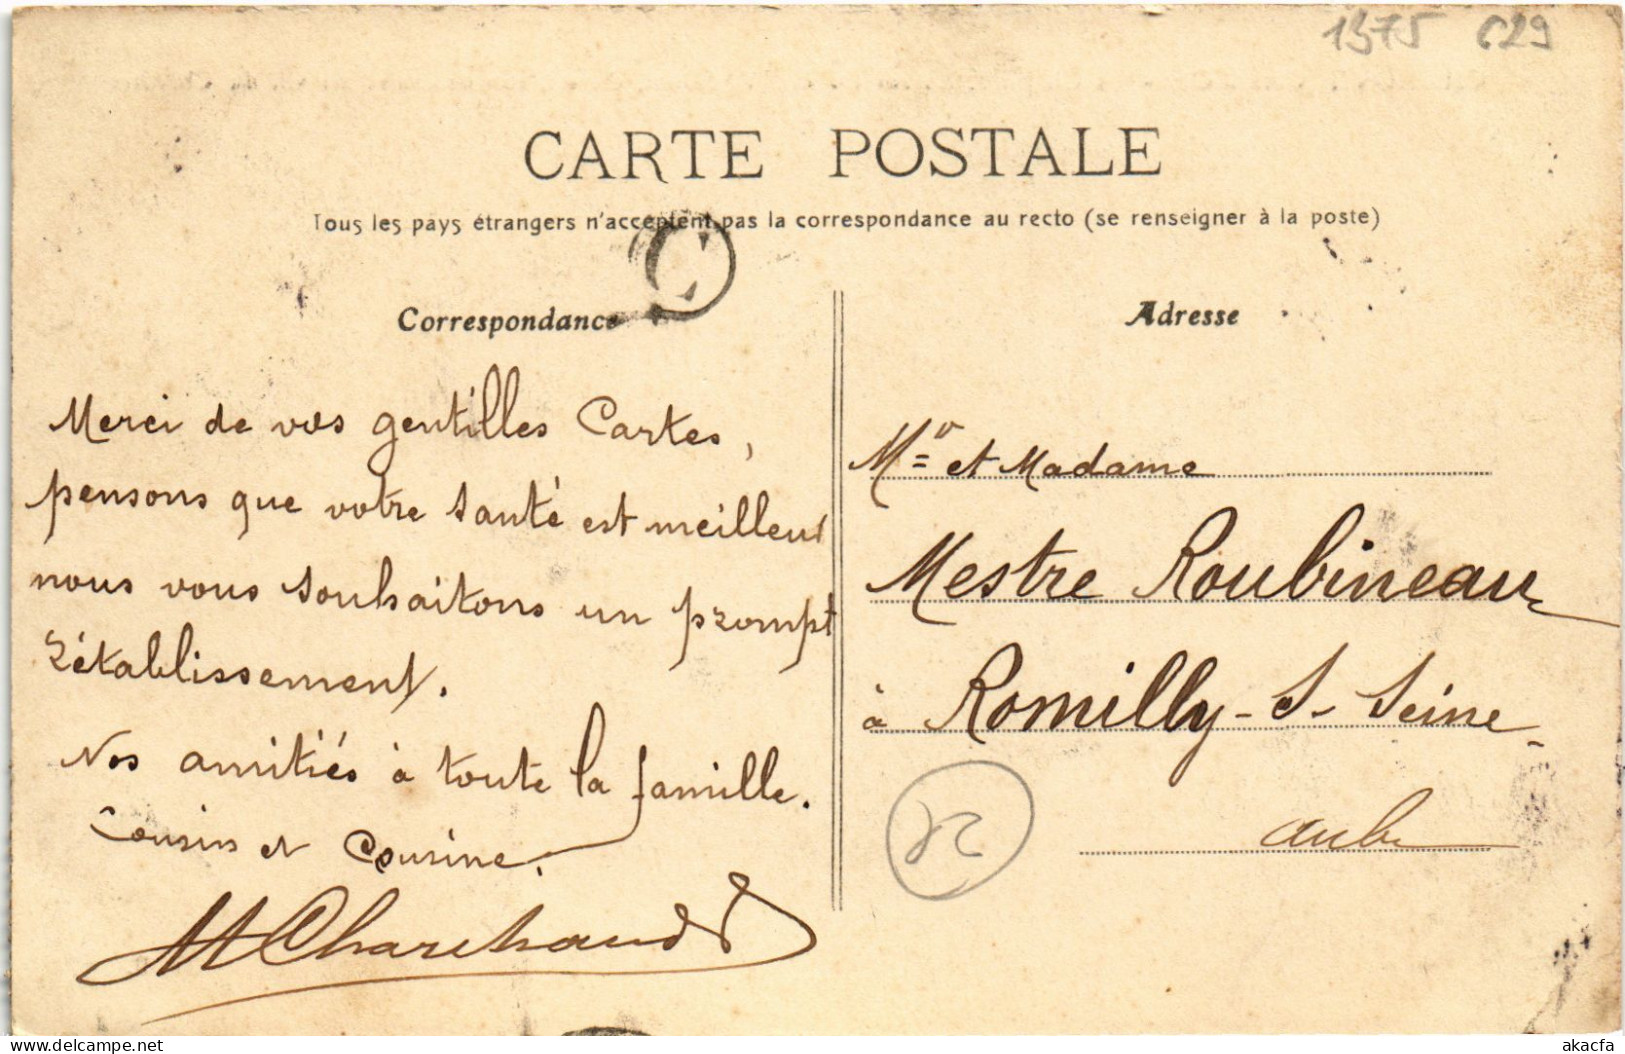 1375 C29
CARTE POSTALE
Tous les pays étrangers n'acceptent pas la correspondance au recto (se renseigner à la poste)
Correspondance
Adresse
Merci de vos gentilles Cartes,
pensons que votre santé est meilleur
nous vous souhaitons un prompt
rétablissement.
Nos amitiés à toute la famille.
Cousins et Cousine.
Mr et Madame
Mestre Roubineau
à Romilly-S-Seine
aube
delcampe.net
akacfa